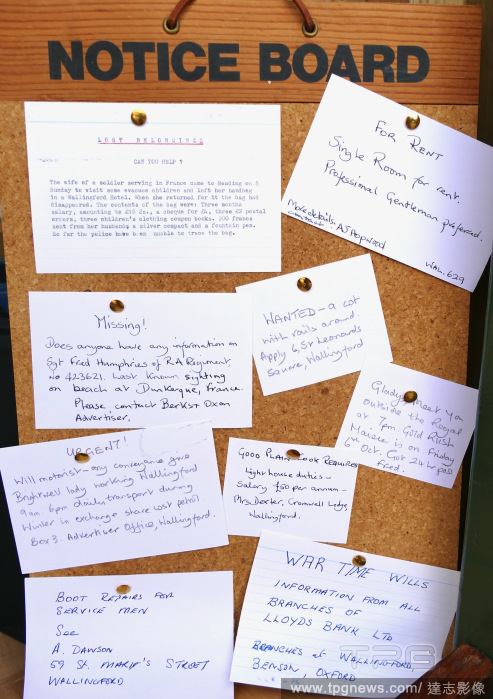 NOTICE BOARD
LOST BELONGINGS
CAN YOU HELP ?
The wife of a soldier serving in France came to Reading on
Sunday to visit some evacuee children and left her handbag
in a Wallingford Hotel. When she returned for it the bag had
disappeared. The contents of the bag were: Three months
salary, amounting to £10 2s., a cheque for £4, three £2 postal
orders, three children's clothing coupon books, 200 francs
sent from her husband, a silver compact and a fountain pen.
So far the police have been unable to trace the bag.
FOR RENT
Single Room for rent.
Professional Gentleman preferred.
More details. AJ Hopwood
contact
WAL. 629
Missing!
Does anyone have any information on
Sgt Fred Humphries of R.A Regiment
no 423621. Last known sighting
on beach at Dunkerque, France.
Please, contact Berks & Oxon
Advertiser.
WANTED – a cot
with rails around.
Apply 6, St Leonards
Square, Wallingford
Gladys, meet you
outside the Royal
at 7pm Gold Rush
Maisie is on Friday
6th Oct. Got 2
Fred.
URGENT!
Will motorist – any conveyance give
Brightwell lady working Wallingford
9am 6pm daily transport during
Winter in exchange share cost petrol
Box 3. Advertiser Office, Wallingford.
GOOD PLAIN COOK REQUIRED
Light house duties –
Salary £50 per annum –
Mrs Dexter, Cromwell Lodge,
Wallingford.
BOOT REPAIRS FOR
SERVICE MEN
SEE
A. DAWSON
59 ST. MARY'S STREET
WALLINGFORD
WAR TIME WILLS
INFORMATION FROM ALL
BRANCHES OF
LLOYDS BANK LTD
BRANCHES at WALLINGFORD,
BENSON, OXFORD
TPG
www.tpgnews.com / 達志影像